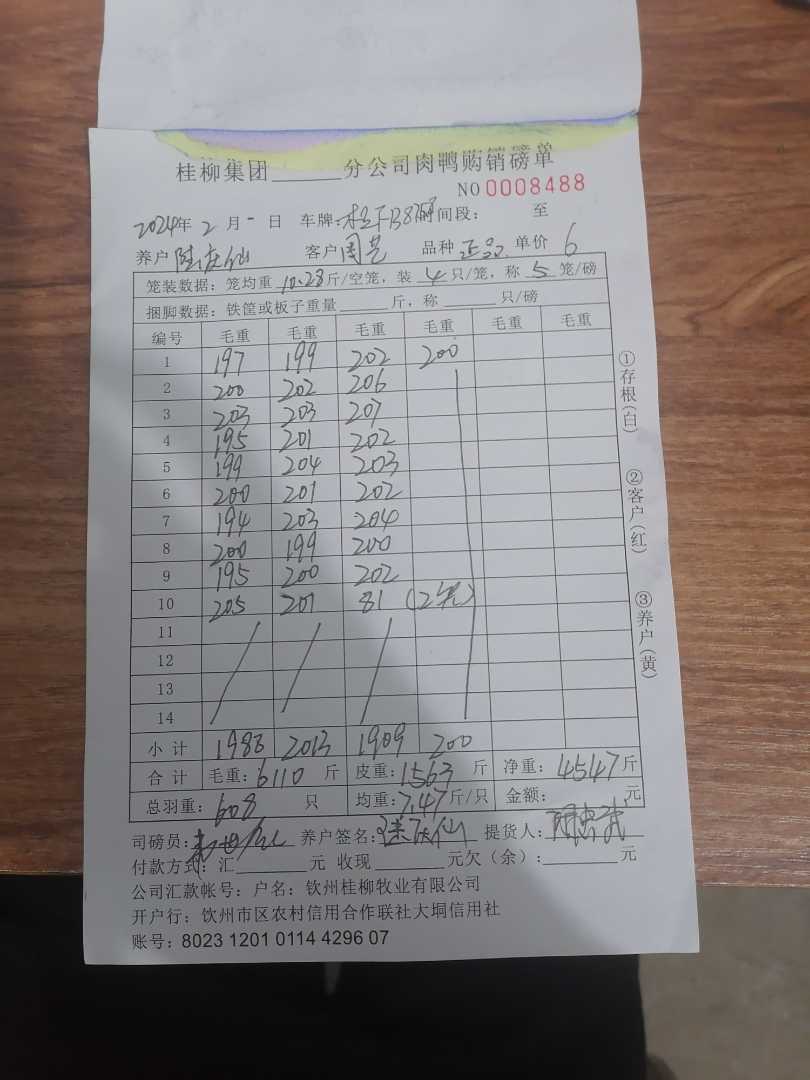 桂柳集团______分公司肉鸭购销磅单
NO 0008488
2024年 2 月 一 日 车牌: 时间段: 至
养户 客户 周艺 品种 正品 单价 6
笼装数据：笼均重 10.28 斤/空笼，装 4 只/笼，称 5 笼/磅
捆脚数据：铁筐或板子重量______斤，称______只/磅
编号 毛重 毛重 毛重 毛重 毛重 毛重
1 197 199 202 200
2 200 202 206
3 203 203 207
4 195 201 202
5 199 204 203
6 200 201 202
7 194 203 204
8 200 199 200
9 195 200 202
10 205 201 81 (2笼)
11
12
13
14
小计 1988 2013 1909 200
合计 毛重: 6110 斤 皮重: 1563 斤 净重: 4547 斤
总羽重: 608 只 均重: 7.47 斤/只 金额: 元
司磅员: 养户签名: 提货人:
付款方式: 汇______元 收现______元欠（余）:______元
公司汇款帐号: 户名: 钦州桂柳牧业有限公司
开户行: 钦州市区农村信用合作联社大垌信用社
账号: 8023 1201 0114 4296 07
①存根(白)
②客户(红)
③养户(黄)